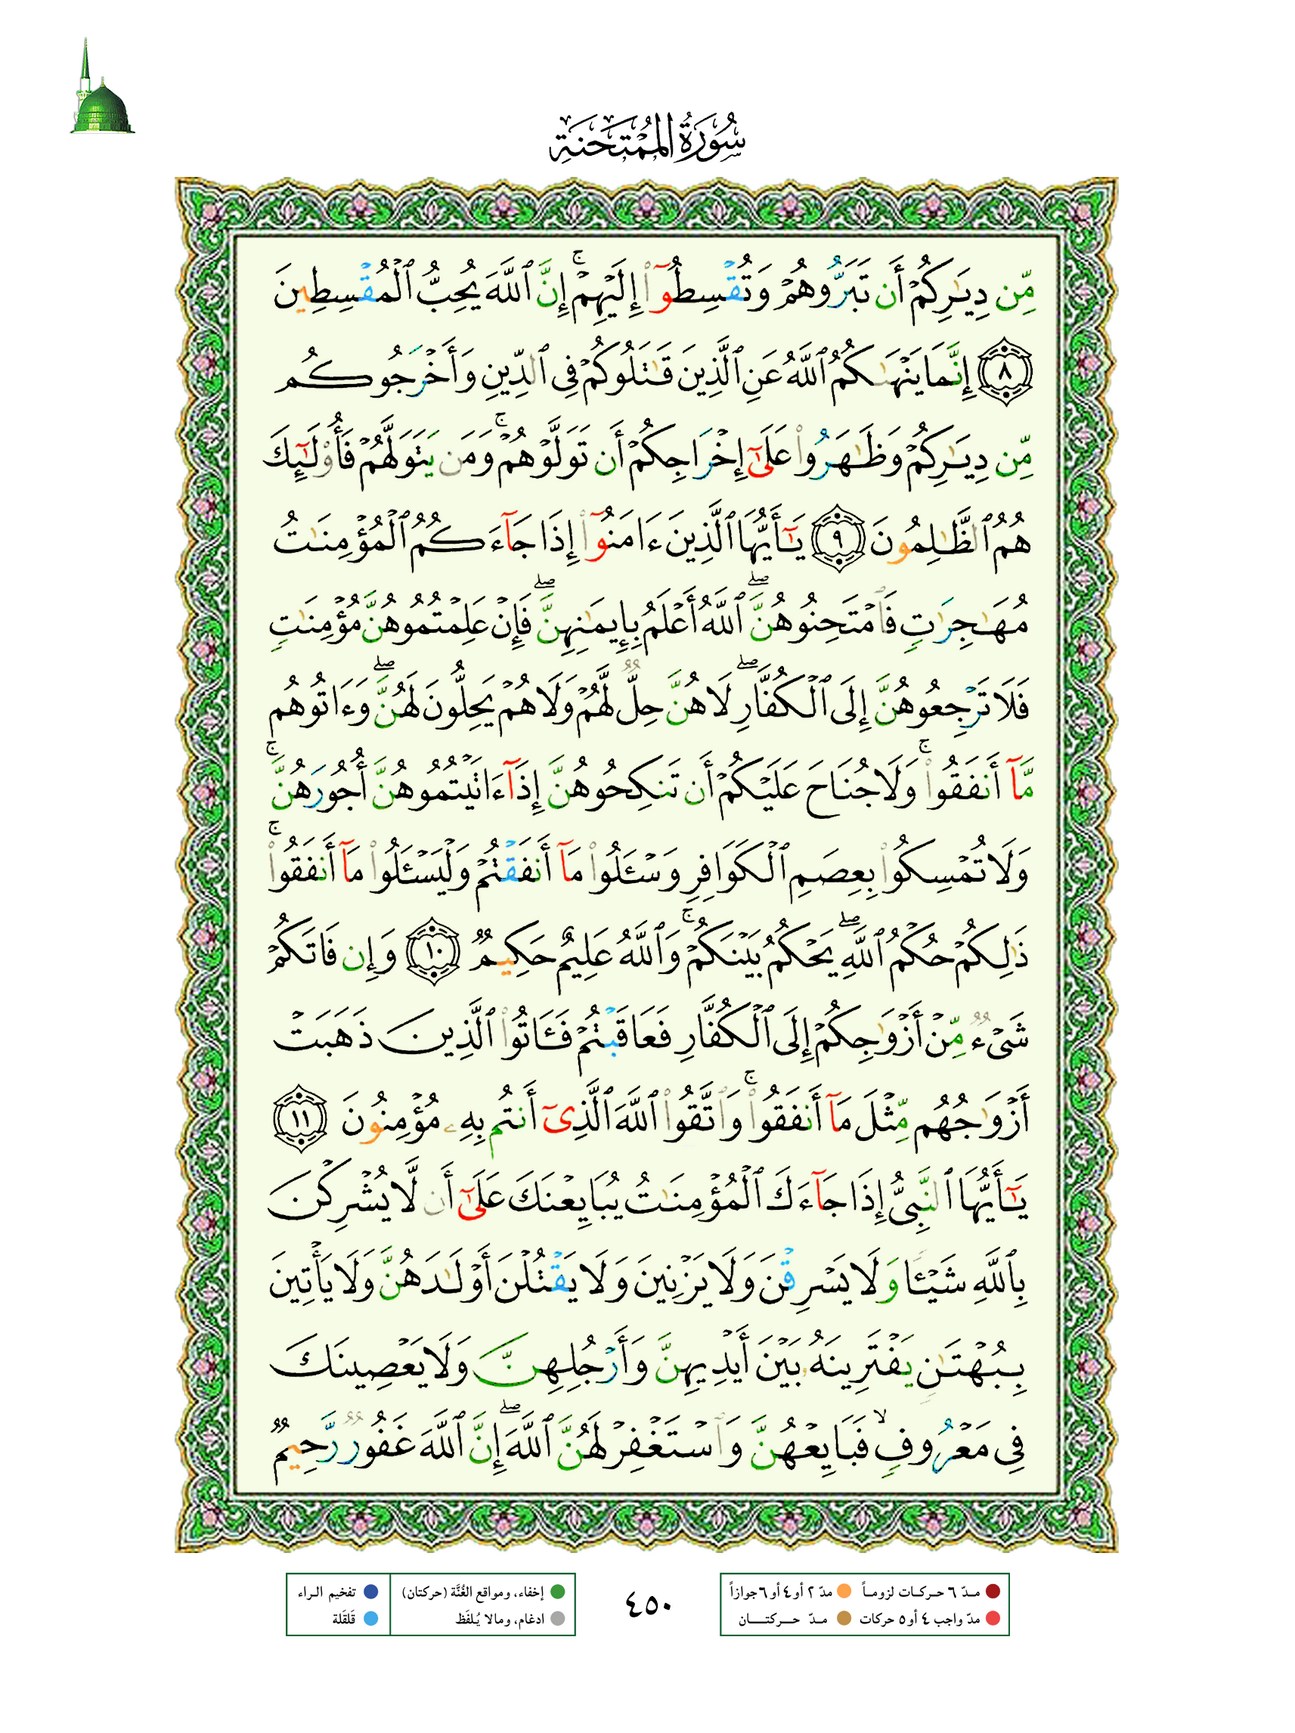 سُورَةُ المُمْتَحَنَةِ
مِّن دِيَـٰرِكُمْ أَن تَبَرُّوهُمْ وَتُقْسِطُوٓا۟ إِلَيْهِمْ ۚ إِنَّ ٱللَّهَ يُحِبُّ ٱلْمُقْسِطِينَ
﴿٨﴾ إِنَّمَا يَنْهَىٰكُمُ ٱللَّهُ عَنِ ٱلَّذِينَ قَـٰتَلُوكُمْ فِى ٱلدِّينِ وَأَخْرَجُوكُم
مِّن دِيَـٰرِكُمْ وَظَـٰهَرُوا۟ عَلَىٰٓ إِخْرَاجِكُمْ أَن تَوَلَّوْهُمْ ۚ وَمَن يَتَوَلَّهُمْ فَأُو۟لَـٰٓئِكَ
هُمُ ٱلظَّـٰلِمُونَ ﴿٩﴾ يَـٰٓأَيُّهَا ٱلَّذِينَ ءَامَنُوٓا۟ إِذَا جَآءَكُمُ ٱلْمُؤْمِنَـٰتُ
مُهَـٰجِرَٰتٍ فَٱمْتَحِنُوهُنَّ ۖ ٱللَّهُ أَعْلَمُ بِإِيمَـٰنِهِنَّ ۖ فَإِنْ عَلِمْتُمُوهُنَّ مُؤْمِنَـٰتٍ
فَلَا تَرْجِعُوهُنَّ إِلَى ٱلْكُفَّارِ ۖ لَا هُنَّ حِلٌّ لَّهُمْ وَلَا هُمْ يَحِلُّونَ لَهُنَّ ۖ وَءَاتُوهُم
مَّآ أَنفَقُوا۟ ۚ وَلَا جُنَاحَ عَلَيْكُمْ أَن تَنكِحُوهُنَّ إِذَآ ءَاتَيْتُمُوهُنَّ أُجُورَهُنَّ ۚ
وَلَا تُمْسِكُوا۟ بِعِصَمِ ٱلْكَوَافِرِ وَسْـَٔلُوا۟ مَآ أَنفَقْتُمْ وَلْيَسْـَٔلُوا۟ مَآ أَنفَقُوا۟ ۚ
ذَٰلِكُمْ حُكْمُ ٱللَّهِ ۖ يَحْكُمُ بَيْنَكُمْ ۚ وَٱللَّهُ عَلِيمٌ حَكِيمٌ ﴿١٠﴾ وَإِن فَاتَكُمْ
شَىْءٌ مِّنْ أَزْوَٰجِكُمْ إِلَى ٱلْكُفَّارِ فَعَاقَبْتُمْ فَـَٔاتُوا۟ ٱلَّذِينَ ذَهَبَتْ
أَزْوَٰجُهُم مِّثْلَ مَآ أَنفَقُوا۟ ۚ وَٱتَّقُوا۟ ٱللَّهَ ٱلَّذِىٓ أَنتُم بِهِۦ مُؤْمِنُونَ ﴿١١﴾
يَـٰٓأَيُّهَا ٱلنَّبِىُّ إِذَا جَآءَكَ ٱلْمُؤْمِنَـٰتُ يُبَايِعْنَكَ عَلَىٰٓ أَن لَّا يُشْرِكْنَ
بِٱللَّهِ شَيْـًٔا وَلَا يَسْرِقْنَ وَلَا يَزْنِينَ وَلَا يَقْتُلْنَ أَوْلَـٰدَهُنَّ وَلَا يَأْتِينَ
بِبُهْتَـٰنٍ يَفْتَرِينَهُۥ بَيْنَ أَيْدِيهِنَّ وَأَرْجُلِهِنَّ وَلَا يَعْصِينَكَ
فِى مَعْرُوفٍ ۙ فَبَايِعْهُنَّ وَٱسْتَغْفِرْ لَهُنَّ ٱللَّهَ ۖ إِنَّ ٱللَّهَ غَفُورٌ رَّحِيمٌ
مـدّ ٦ حـركـات لزومـاً مدّ ٢ أو ٤ أو ٦ جوازاً
مدّ واجب ٤ أو ٥ حركات مـدّ حـــركتـــان
٤٥٠
إخفاء، ومواقع الغُنَّة (حركتان) تفخيم الـراء
ادغام، ومالا يُـلفَظ قَلقَلة